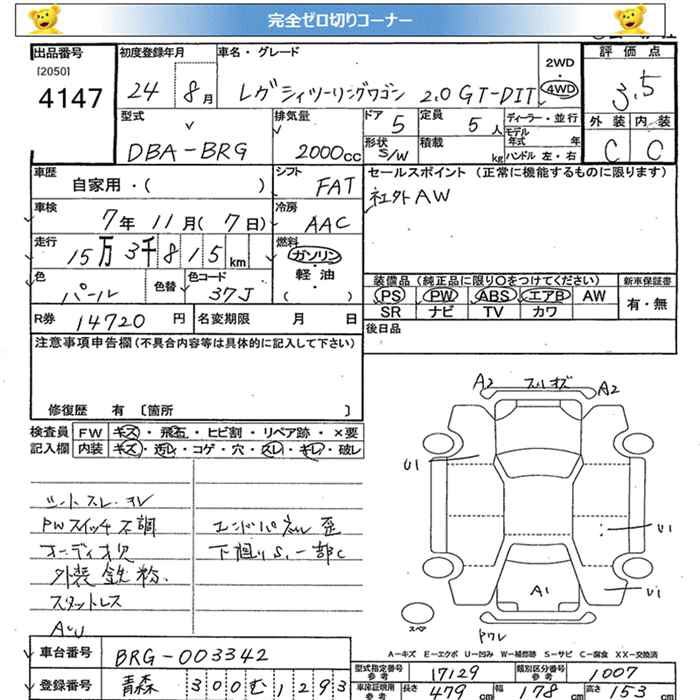 完全ゼロ切りコーナー
出品番号 初度登録年月 車名・グレード 評価点
[2050]
4147 24 8月 レガシィツーリングワゴン 2.0 GT-DIT 2WD・4WD 3.5
型式 排気量 ドア 定員 ディーラー・並行 外装 内装
DBA-BRG 2000cc 5 5人 モデル年式 年 C C
形状 S/W 積載 kg ハンドル 左・右
車歴 シフト セールスポイント (正常に機能するものに限ります)
自家用・( ) FAT 社外AW
車検 冷房
7年 11月(7日) AAC
走行 燃料
15万3千815km ガソリン・軽油
色 色替 色コード ( )
パール 37J
装備品(純正品に限り○をつけてください) 新車保証書
PS PW ABS エアB AW 有・無
SR ナビ TV カワ
R券 14720円 名変期限 月 日 後日品
注意事項申告欄(不具合内容等は具体的に記入して下さい)
修復歴 有 〔箇所 〕
検査員 FW キズ・飛石・ヒビ割・リペア跡・×要
記入欄 内装 キズ・汚レ・コゲ・穴・スレ・キレ・破レ
A2 スリキズ A2
U1
シートスレ・ヨレ
PWスイッチ不調 エンドパネル歪
オーディオ欠 下廻りS、一部C
U1
外装鉄粉.
A1 U1
スタットレス
スペア
AW ワレ
A-キズ E-エクボ U-凹み W-補修跡 S-サビ C-腐食 XX-交換済
車台番号 BRG-003342 型式指定番号 参考 17129 類別区分番号 参考 1007
登録番号 青森 300 む 1293 車庫証明用 参考 長さ 479cm 幅 178cm 高さ 153cm